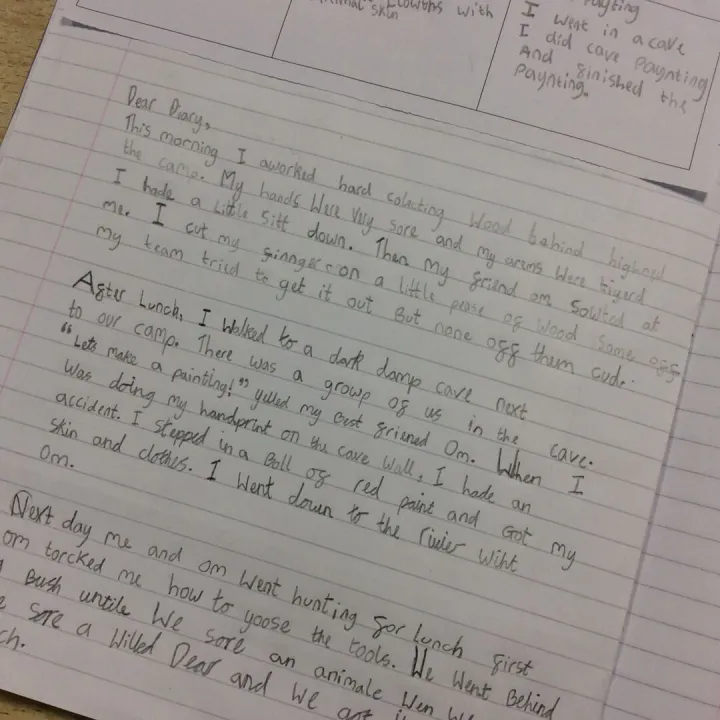 flowers with
skin
paynting
I went in a cave
I did cave Paynting
And finished the
Paynting.
Dear Diary,
This morning I aworked hard colecting wood behind
the camp. My hands Were Very sore and my arems Were tigerd
I hade a little Sitt down. Then my friend om Sowted at
me. I cut my finnger on a little pease of wood Some off
my team tried to get it out But none off them cud.
After Lunch, I Walked to a dark damp cave next
to our camp. There was a growp of us in the cave.
"Lets make a painting!" yelled my Best friened Om. When I
Was doing my handprint on the cave Wall, I hade an
accident. I stepped in a Boll of red paint and Got my
Skin and clothes. I Went down to the river Wiht
Om.
Next day me and om Went hunting for lunch first
om torcked me how to yoose the tools. We Went Behind
Bush untile We sore an animale Wen we
sore a Willed Dear and We got
ch.